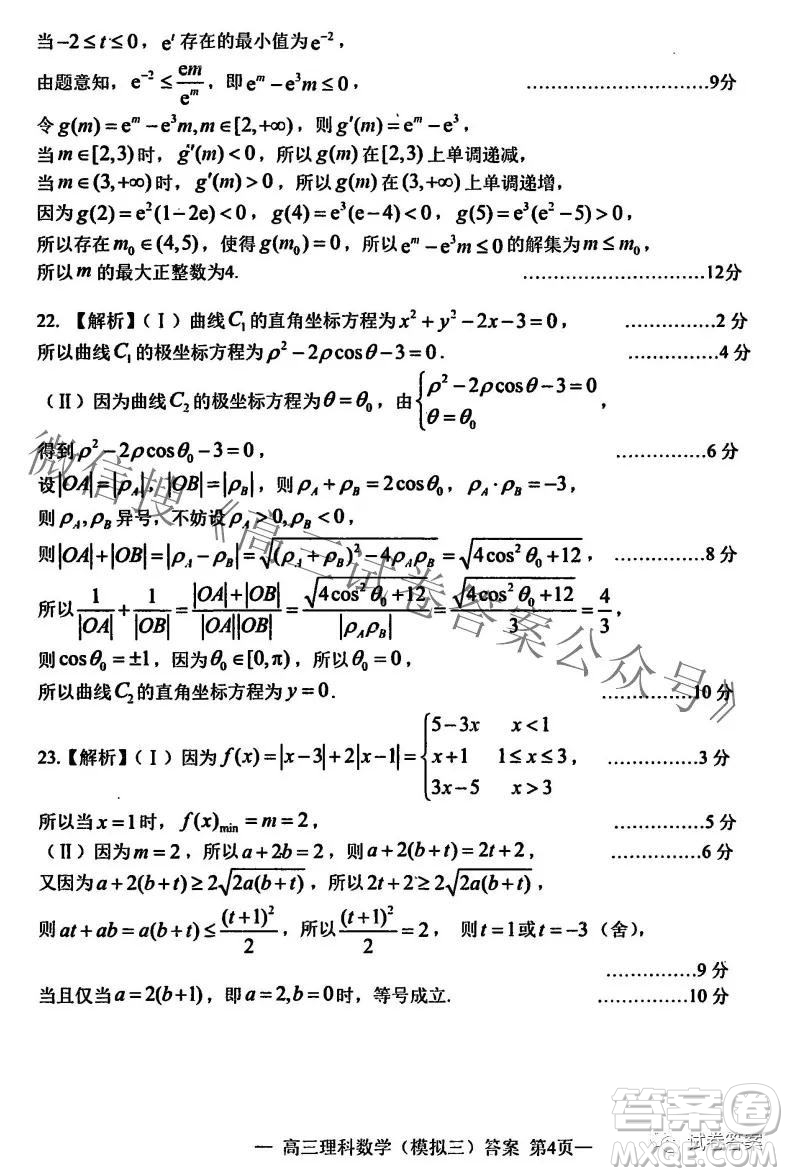 当-2≤t≤0，eᵗ存在的最小值为e⁻²，
由题意知，e⁻²≤em/eᵐ，即eᵐ-e³m≤0； ……………………9分
令g(m)=eᵐ-e³m,m∈[2,+∞)，则g'(m)=eᵐ-e³，
当m∈[2,3)时，g'(m)<0，所以g(m)在[2,3)上单调递减，
当m∈(3,+∞)时，g'(m)>0，所以g(m)在(3,+∞)上单调递增，
因为g(2)=e²(1-2e)<0，g(4)=e³(e-4)<0，g(5)=e³(e²-5)>0，
所以存在m₀∈(4,5)，使得g(m₀)=0，所以eᵐ-e³m≤0的解集为m≤m₀，
所以m的最大正整数为4. ……………………12分
22. 【解析】（Ⅰ）曲线C₁的直角坐标方程为x²+y²-2x-3=0， ……………2分
所以曲线C₁的极坐标方程为ρ²-2ρcosθ-3=0． ……………4分
（Ⅱ）因为曲线C₂的极坐标方程为θ=θ₀，由{ρ²-2ρcosθ-3=0
θ=θ₀，
得到ρ²-2ρcosθ₀-3=0， ……………6分
设|OA|=|ρ_A|，|OB|=|ρ_B|，则ρ_A+ρ_B=2cosθ₀，ρ_A·ρ_B=-3，
则ρ_A,ρ_B异号，不妨设ρ_A>0,ρ_B<0，
则|OA|+|OB|=|ρ_A-ρ_B|=√((ρ_A+ρ_B)²-4ρ_Aρ_B)=√(4cos²θ₀+12)， ……………8分
所以1/|OA|+1/|OB|=(|OA|+|OB|)/(|OA||OB|)=√(4cos²θ₀+12)/|ρ_Aρ_B|=√(4cos²θ₀+12)/3=4/3，
则cosθ₀=±1，因为θ₀∈[0,π)，所以θ₀=0，
所以曲线C₂的直角坐标方程为y=0． ……………10分
23.【解析】（Ⅰ）因为f(x)=|x-3|+2|x-1|={5-3x x<1
x+1 1≤x≤3，
3x-5 x>3
……………3分
所以当x=1时，f(x)min=m=2， ……………5分
（Ⅱ）因为m=2，所以a+2b=2，则a+2(b+t)=2t+2， ……………6分
又因为a+2(b+t)≥2√(2a(b+t))，所以2t+2≥2√(2a(b+t))，
则at+ab=a(b+t)≤(t+1)²/2，所以(t+1)²/2=2，则t=1或t=-3（舍），
……………9分
当且仅当a=2(b+1)，即a=2,b=0时，等号成立. ……………10分
微信搜《高三试卷答案公众号》
— 高三理科数学（模拟三）答案 第4页—
试卷答案
答案圈
MXQE.COM